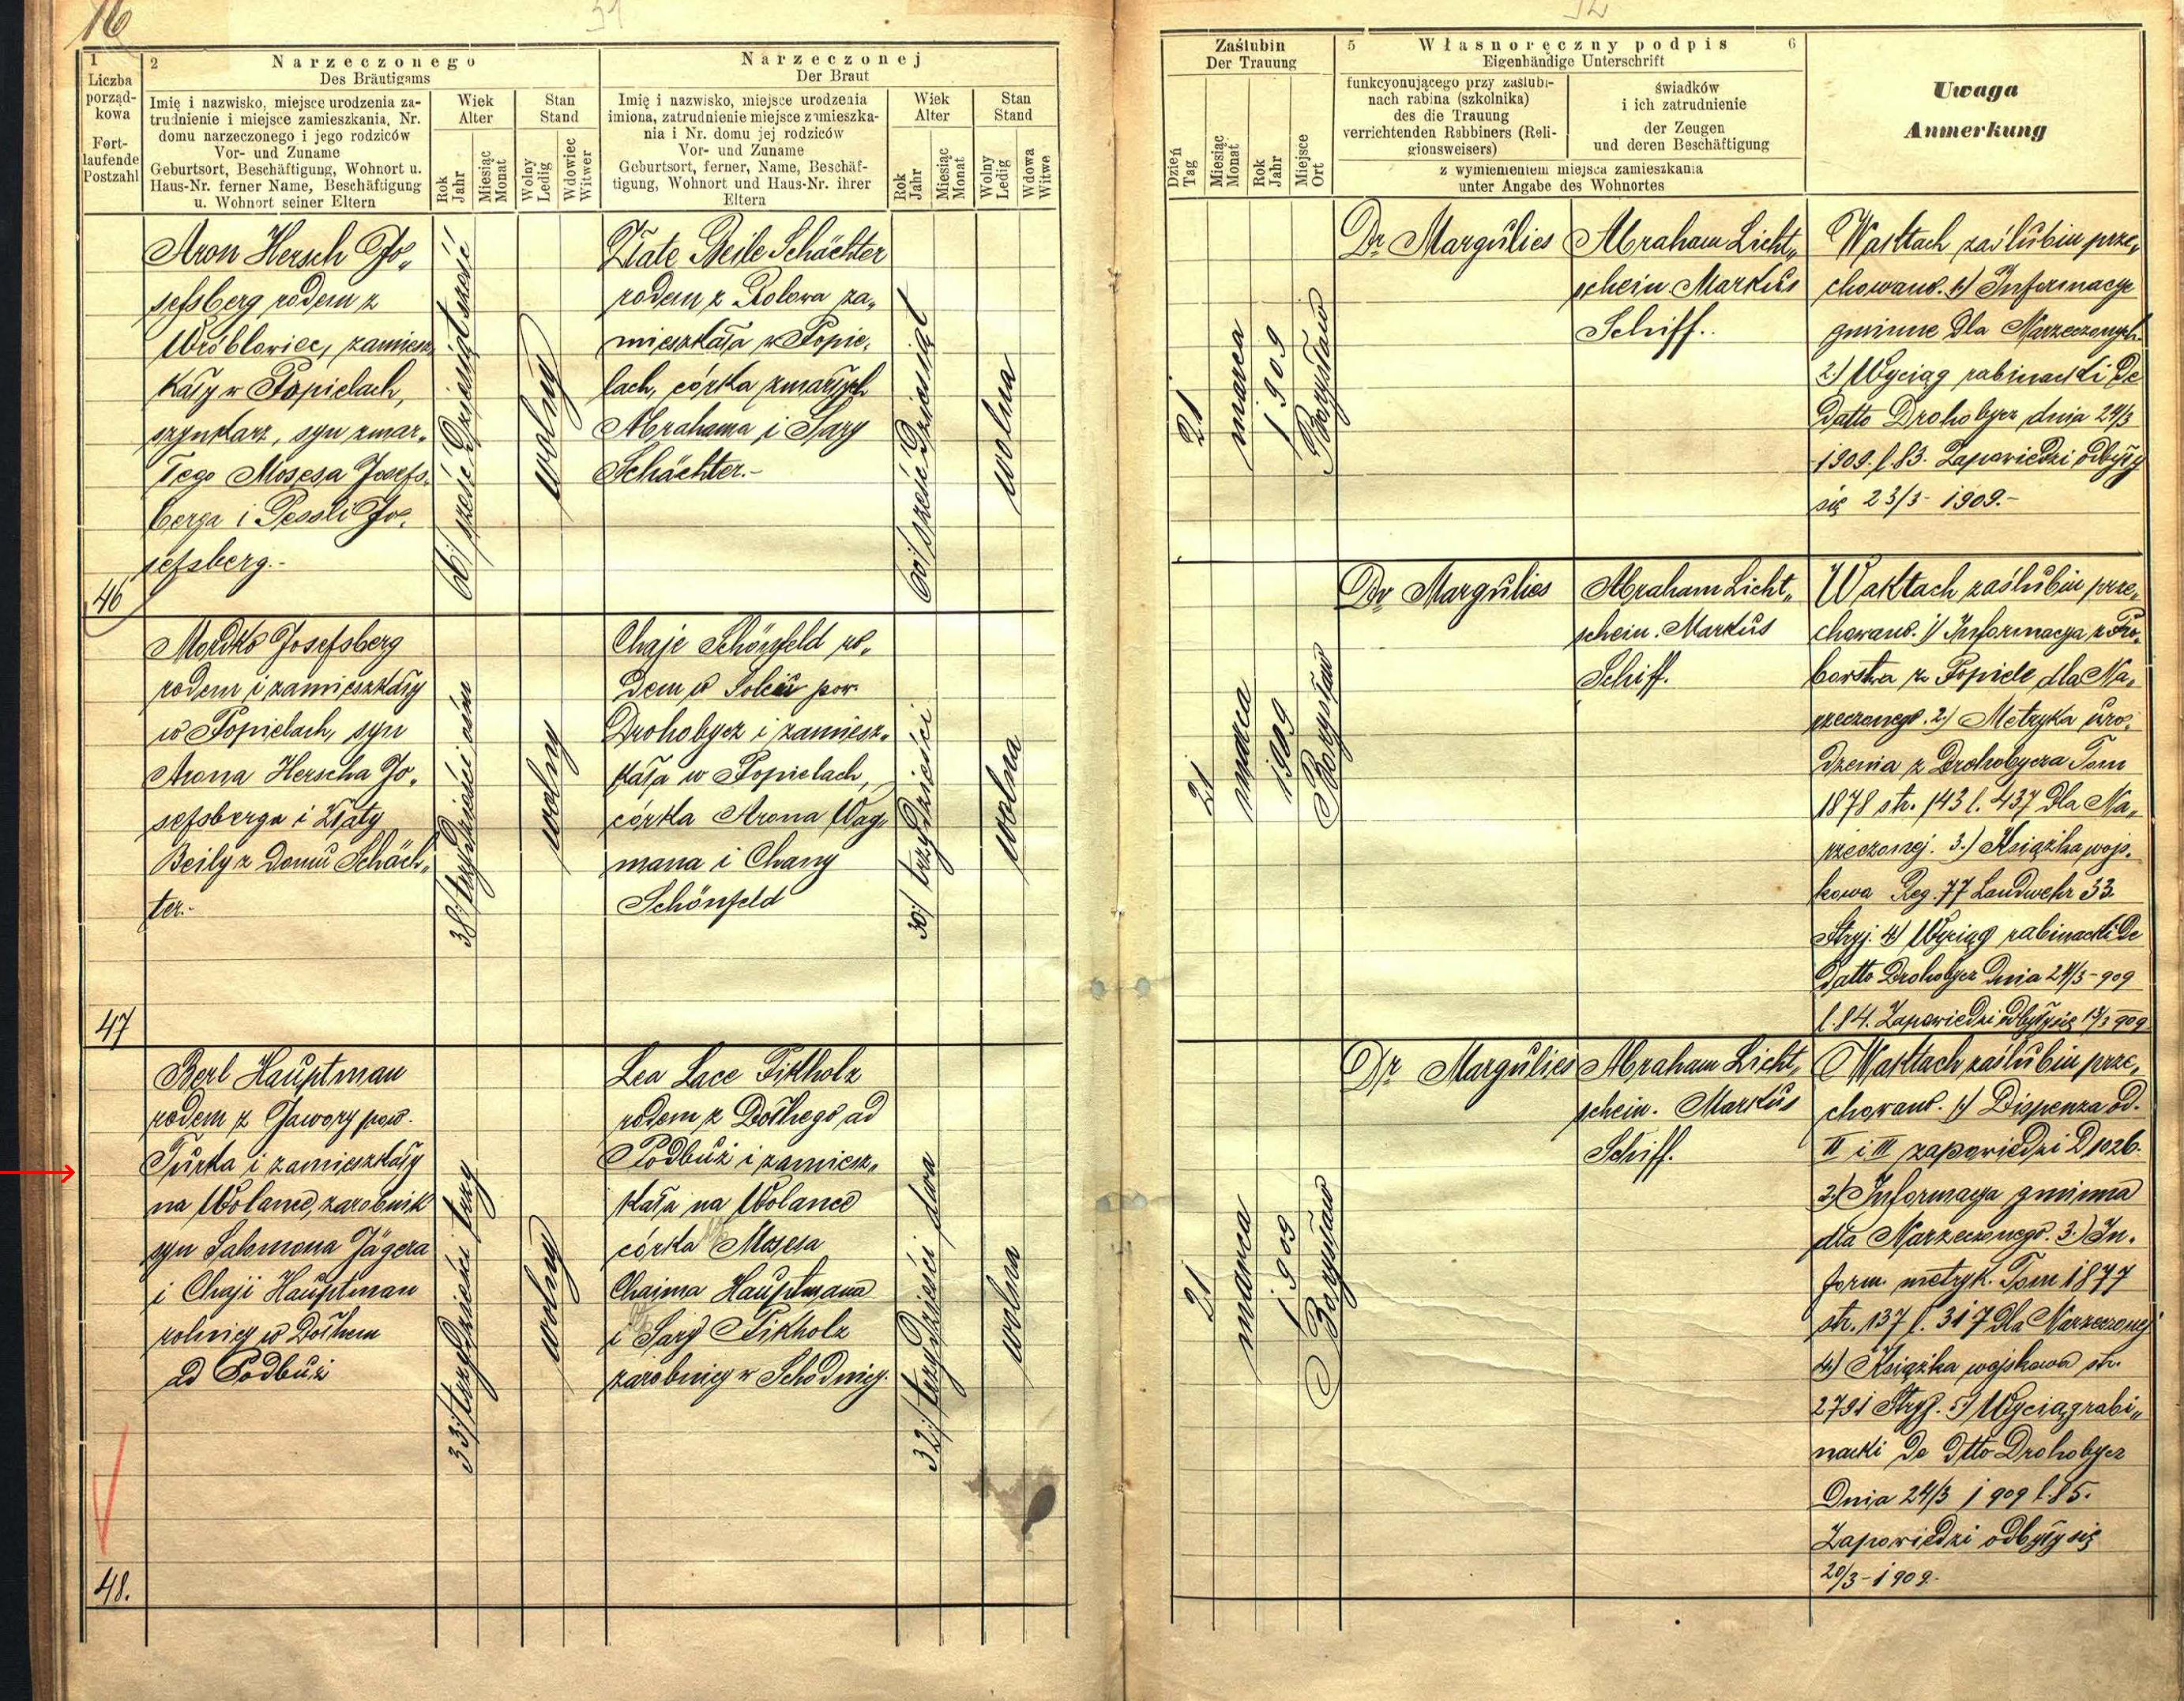 16
51
52
1
Liczba
porząd-
kowa
Fort-
laufende
Postzahl
2
Narzeczonego
Des Bräutigams
Imię i nazwisko, miejsce urodzenia za-
trudnienie i miejsce zamieszkania, Nr.
domu narzeczonego i jego rodziców
Vor- und Zuname
Geburtsort, Beschäftigung, Wohnort u.
Haus-Nr. ferner Name, Beschäftigung
u. Wohnort seiner Eltern
Wiek
Alter
Rok
Jahr
Miesiąc
Monat
Stan
Stand
Wolny
Ledig
Wdowiec
Witwer
Narzeczonej
Der Braut
Imię i nazwisko, miejsce urodzenia
imiona, zatrudnienie miejsce zamieszka-
nia i Nr. domu jej rodziców
Vor- und Zuname
Geburtsort, ferner, Name, Beschäf-
tigung, Wohnort und Haus-Nr. ihrer
Eltern
Wiek
Alter
Rok
Jahr
Miesiąc
Monat
Stan
Stand
Wolny
Ledig
Wdowa
Witwe
Zaślubin
Der Trauung
Dzień
Tag
Miesiąc
Monat
Rok
Jahr
Miejsce
Ort
5 Własnoręczny podpis 6
Eigenhändige Unterschrift
funkcyonującego przy zaślubi-
nach rabina (szkolnika)
des die Trauung
verrichtenden Rabbiners (Reli-
gionsweisers)
świadków
i ich zatrudnienie
der Zeugen
und deren Beschäftigung
z wymienieniem miejsca zamieszkania
unter Angabe des Wohnortes
Uwaga
Anmerkung
46
Aron Hersch Jo„
sefsberg rodem z
Wróblowiec, zamiesz„
kały w Popielach,
szynkarz, syn zmar„
łego Mosesa Josefs„
berga i Pessli Jo„
sefsberg.-
66/ sześćdziesiątsześć
wolny
Złate Beile Schächter
rodem z Rolowa za„
mieszkała w Popie„
lach, córka zmarłych
Abrahama i Sary
Schächter.-
sześćdziesiąt
wolna
21
marca
1909
Borysław
Dr Margulies
Abraham Licht„
schein. Markus
Schiff.
W aktach zaślubin prze„
chowano. 1.) Informacye
gminne dla Narzeczonych
2.) Wyciąg rabinacki de
datto Drohobycz dnia 24/3
1909. l. 83. Zapowiedzi odbyły
się 23/3- 1909.-
47
Mordko Josefsberg
rodem i zamieszkały
w Popielach, syn
Arona Herscha Jo„
sefsberga i Złaty
Beily z domu Schäch„
ter.-
38/ trzydzieści ośm
wolny
Chaje Schönfeld ro„
dem w Solcu pow.
Drohobycz i zamiesz„
kała w Popielach,
córka Arona Wag„
mana i Chany
Schönfeld
30/ trzydzieści
wolna
21
marca
1909
Borysław
Dr Margulies
Abraham Licht„
schein. Markus
Schiff.
W aktach zaślubin prze„
chowano. 1/ Informacya z Pro„
borstwa z Popiele dla Na„
rzeczonego. 2.) Metryka uro„
dzenia z Drohobycza Tom
1878 str. 143 l. 437 dla Na„
rzeczonej. 3.) Książka wojs„
kowa Reg. 77 Landwehr 33
Stryj. 4) Wyciąg rabinacki de
datto Drohobycz dnia 24/3-909
l. 84. Zapowiedzi odbyły się 909
48.
Berl Hauptman
rodem z Jawory pow.
Turka i zamieszkały
na Wolance, zarobnik
syn Salomona Jägera
i Chaji Hauptman
rolnicy w Dołhem
ad Podbuż
33/ trzydzieści trzy
wolny
Lea Lace Pikholz
rodem z Dołhego ad
Podbuż i zamiesz„
kała na Wolance
córka Mosesa
Chaima Hauptmana
i Sary Pikholz
zarobnicy w Schodnicy.
32/ trzydzieści dwa
wolna
21
marca
1909
Borysław
Dr Margulies
Abraham Licht„
schein. Markus
Schiff.
W aktach zaślubin prze„
chowano. 1.) Dispenza od
II i III zapowiedzi
2.) Informacya gminna
dla Narzeczonego. 3.) In„
form. metryk. Tom 1877
str. 137 l. 317 dla Narzeczonej
4.) Książka wojskowa str.
2791 Stryj. 5) Wyciąg rabi„
nacki de dtto Drohobycz
dnia 24/3 1909 l. 85.
Zapowiedzi odbyły się
20/3-1909.